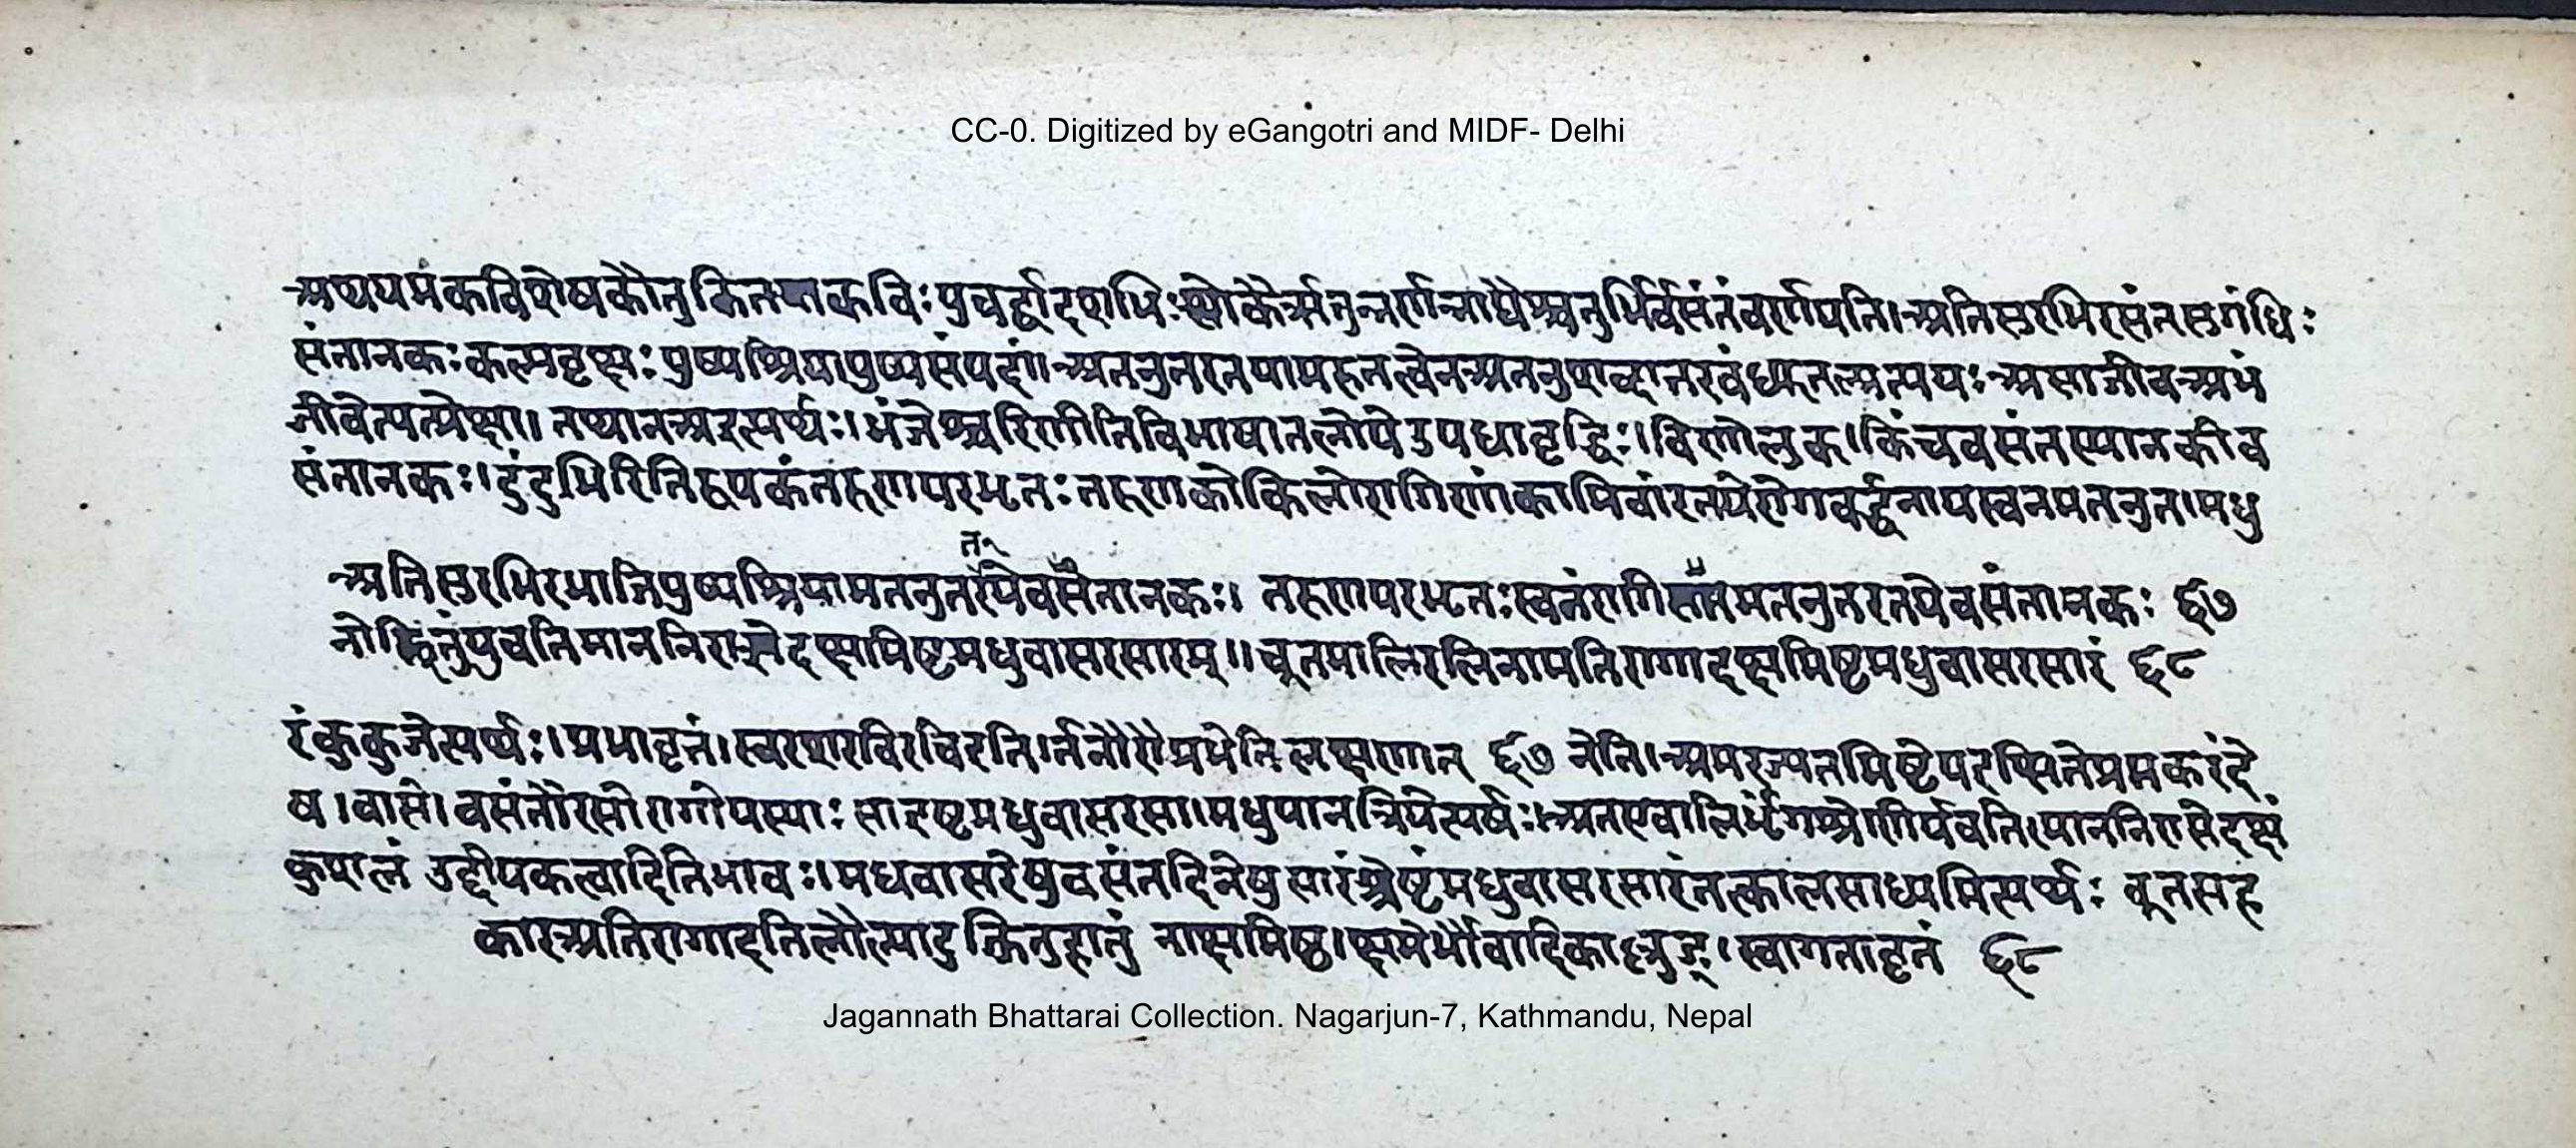 CC-0. Digitized by eGangotri and MIDF- Delhi
अथ यमकविशेषकौतुकितया कविः पुनर्द्वादशभिः श्लोकैर्ऋतून्वर्णयन्नाद्यैश्चतुर्भिर्वसंतं वर्णयति। अतिसुरभिरसंतसुगंधिः
संतानकः कल्पवृक्षः पुष्पश्रिया पुष्पसंपदा। अतनुतरतया
जीवेत्युत्प्रेक्षा॥ तथानत्र इत्यर्थः। भंजेश्च चिणीति विभाषा नलोपे उपधावृद्धिः। चिणो लुक्। किंच वसंतस्यानकीव
संतानकः। दुंदुभिरिति रूपकं तरुणपरभृतः तरुणकोकिलो रागिणां कामिनां रतये रागवर्द्धनाय स्वनमतनुत। मधु
त
अतिसुरभिरभाजि पुष्पश्रियामतनुतरतयेव संतानकः। तरुणपरभृतः स्वनं रागिणामतनुत रतये वसंतानकः ६७
नोज्झितुं युवतिमाननिरासे दक्षमिष्टमधुवासरसारम्॥ चूतमालिरलिनामतिरागादक्षमिष्ट मधुवासरसारं ६८
रं कुकुजेत्यर्थः। प्रभावृतं। स्वरशरविरचिरतिर्ननौरौ प्रभेति लक्षणात् ६७ नेति।
ष। वासे। वसंतौ रसो रागो यस्याः सा इष्टमधुवासरसा। मधुपानप्रियेत्यर्थः। अतएवालिर्भृंगश्रेणिर्युवतिमाननिरासे दक्षं
कुशलं उद्दीपकत्वादिति भावः। मधवासरेषु वसंतदिनेषु सारं श्रेष्टं मधुवासरसारं तत्कालसाध्यमित्यर्थः चूतसह
कारअतिरागादतिलौल्यादुज्झितुं हातुं नाक्षमिष्ठ। क्षमेर्भौवादिकाल्लुङ्। स्वागतावृतं ६८
Jagannath Bhattarai Collection. Nagarjun-7, Kathmandu, Nepal